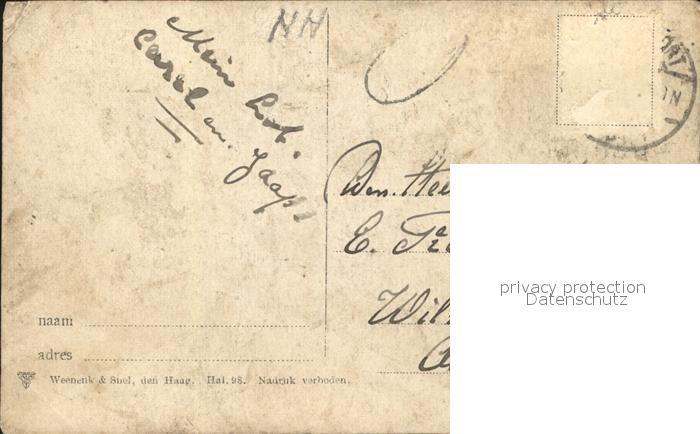 NH
Mein
Carel en. Jaap.
Den. Hee
E.
Wil
naam
adres
Weenenk & Snel, den Haag. Hal. 98. Nadruk verboden.
privacy protection
Datenschutz